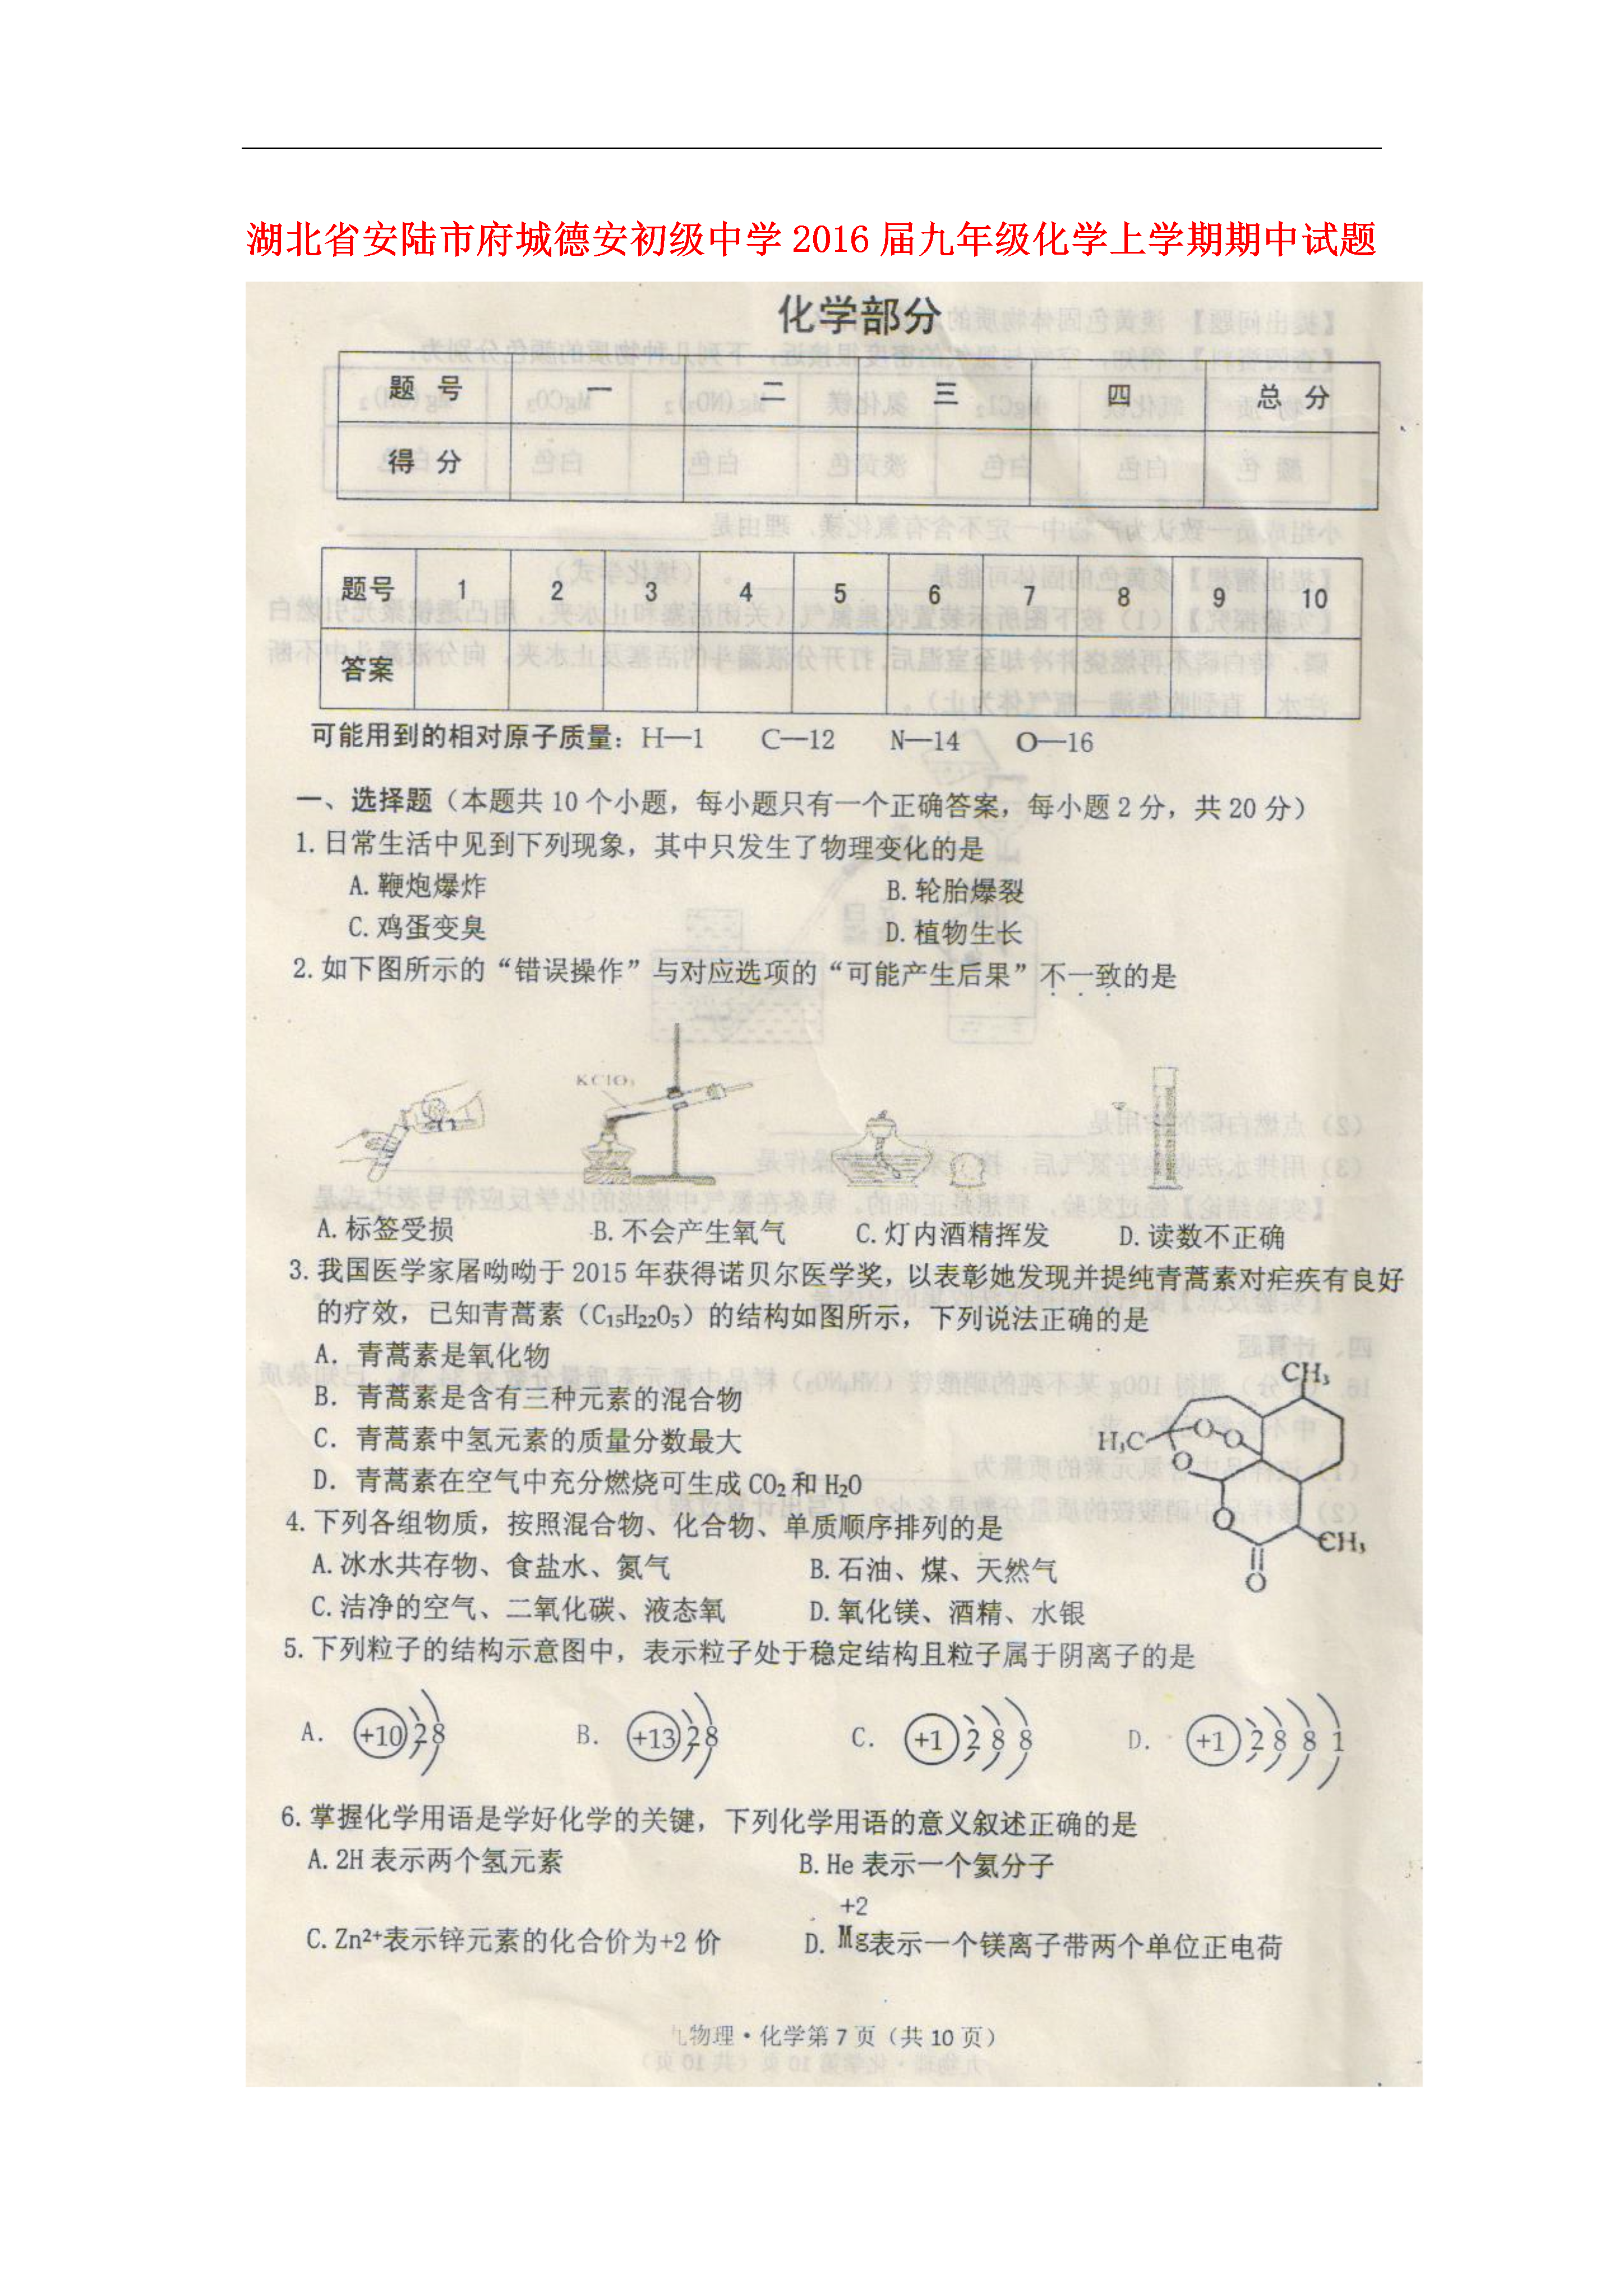 湖北省安陆市府城德安初级中学 2016 届九年级化学上学期期中试题
化学部分
题 号 一 二 三 四 总 分
得 分
题号 1 2 3 4 5 6 7 8 9 10
答案
可能用到的相对原子质量：H—1 C—12 N—14 O—16
一、选择题（本题共 10 个小题，每小题只有一个正确答案，每小题 2 分，共 20 分）
1. 日常生活中见到下列现象，其中只发生了物理变化的是
A. 鞭炮爆炸 B. 轮胎爆裂
C. 鸡蛋变臭 D. 植物生长
2. 如下图所示的“错误操作”与对应选项的“可能产生后果”不一致的是
KClO₃
A. 标签受损 B. 不会产生氧气 C. 灯内酒精挥发 D. 读数不正确
3. 我国医学家屠呦呦于 2015 年获得诺贝尔医学奖，以表彰她发现并提纯青蒿素对疟疾有良好
的疗效，已知青蒿素（C₁₅H₂₂O₅）的结构如图所示，下列说法正确的是
A. 青蒿素是氧化物
B. 青蒿素是含有三种元素的混合物
C. 青蒿素中氢元素的质量分数最大
D. 青蒿素在空气中充分燃烧可生成 CO₂ 和 H₂O
CH₃
H₃C O O
O
O CH₃
O
4. 下列各组物质，按照混合物、化合物、单质顺序排列的是
A. 冰水共存物、食盐水、氮气 B. 石油、煤、天然气
C. 洁净的空气、二氧化碳、液态氧 D. 氧化镁、酒精、水银
5. 下列粒子的结构示意图中，表示粒子处于稳定结构且粒子属于阴离子的是
A. +10 2 8 B. +13 2 8 C. +1 2 8 8 D. +1 2 8 8 1
6. 掌握化学用语是学好化学的关键，下列化学用语的意义叙述正确的是
A. 2H 表示两个氢元素 B. He 表示一个氦分子
+2
C. Zn²⁺表示锌元素的化合价为+2 价 D. Mg表示一个镁离子带两个单位正电荷
物理·化学第 7 页（共 10 页）